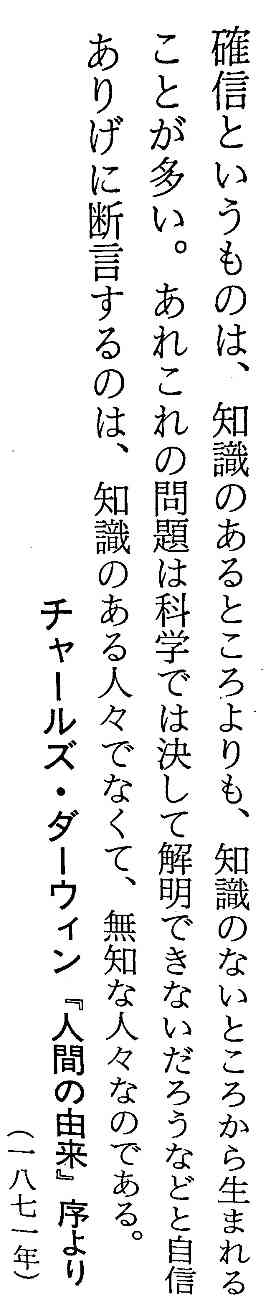 確信というものは、知識のあるところよりも、知識のないところから生まれる
ことが多い。あれこれの問題は科学では決して解明できないだろうなどと自信
ありげに断言するのは、知識のある人々でなくて、無知な人々なのである。
チャールズ・ダーウィン『人間の由来』序より
（一八七一年）